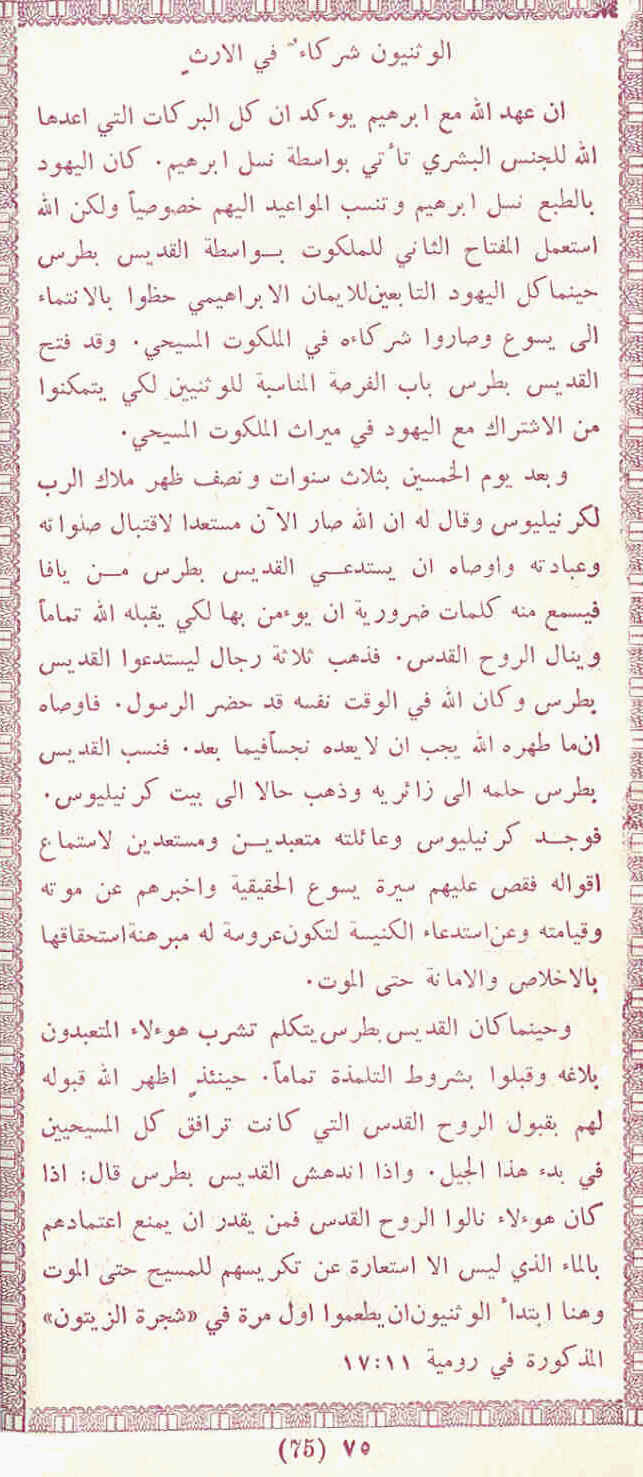 الوثنيون شركاءٌ في الارثِ
ان عهد الله مع ابرهيم يوءكد ان كل البركات التي اعدها
الله للجنس البشري تأتي بواسطة نسل ابرهيم. كان اليهود
بالطبع نسل ابرهيم وتنسب المواعيد اليهم خصوصياً ولكن الله
استعمل المفتاح الثاني للملكوت بـواسطة القديس بطرس
حينما كل اليهود التابعين للايمان الابراهيمي حظوا بالانتماء
الى يسوع وصاروا شركاءه في الملكوت المسيحي. وقد فتح
القديس بطرس باب الفرصة المناسبة للوثنيين لكي يتمكنوا
من الاشتراك مع اليهود في ميراث الملكوت المسيحي.
وبعد يوم الخمسين بثلاث سنوات ونصف ظهر ملاك الرب
لكرنيليوس وقال له ان الله صار الآن مستعدا لاقتبال صلواته
وعبادته واوصاه ان يستدعـي القديس بطرس مـن يافا
فيسمع منه كلمات ضرورية ان يوءمن بها لكي يقبله الله تماماً
وينال الروح القدس. فذهب ثلاثة رجال ليستدعوا القديس
بطرس وكان الله في الوقت نفسه قد حضر الرسول. فاوصاه
ان ما طهره الله يجب ان لا يعده نجساً فيما بعد. فنسب القديس
بطرس حلمه الى زائريه وذهب حالا الى بيت كرنيليوس.
فوجـد كرنيليوس وعائلته متعبديـن ومستعدين لاستماع
اقواله فقص عليهم سيرة يسوع الحقيقية واخبرهم عن موته
وقيامته وعن استدعاء الكنيسة لتكون عروسة له مبرهنة استحقاقها
بالاخلاص والامانة حتى الموت.
وحينما كان القديس بطرس يتكلم تشرب هوءلاء المتعبدون
بلاغه وقبلوا بشروط التلمذة تماماً. حينئذٍ اظهر الله قبوله
لهم بقبول الروح القدس التي كانت ترافق كل المسيحيين
في بدء هذا الجيل. واذا اندهش القديس بطرس قال: اذا
كان هوءلاء نالوا الروح القدس فمن يقدر ان يمنع اعتمادهم
بالماء الذي ليس الا استعارة عن تكريسهم للمسيح حتى الموت
وهنا ابتدأ الوثنيون ان يطعموا اول مرة في «شجرة الزيتون»
المذكورة في رومية ١١:١٧
٧٥ (75)